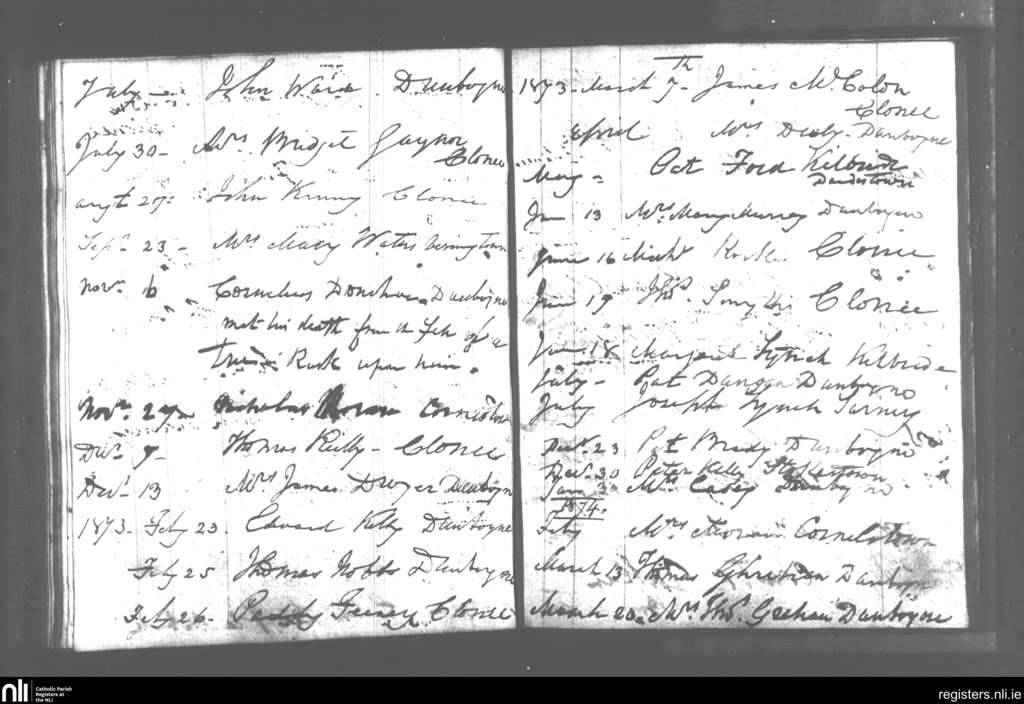 July — John Ward Dunboyne
July 30 - Mrs Bridget Gaynor
Clonee
augt 27 - John Kenny Clonee
Sepr 23 - Mrs Mary Waters
Novr 16 Cornelius Donohoe Dunboyne
met his death from a fall of a
tree - Rusk upon him.
Novr 27 - Nicholas Moran
Decr 9 - Thomas Reilly - Clonee
Decr 13 Mrs James Dwyer Dunboyne
1873 - Feby 23. Edward Kelly Dunboyne
Feby 25 Thomas Nobbs Dunboyne
Feby 26 - Feeney Clonee
1873 - March 7th - James Mc. Colon
Clonee
April Mrs Dunboyne
May - Pat Ford Kilbride
June 13 Mrs Mary Murray Dunboyne
June 16 Clonee
June 19 Thos. Smyths Clonee
June 18 Margaret Lynch Kilbride
July - Pat Dunboyne
July Joseph Lynch Sarney
Decr. 23 Pat Brady Dunboyne
Decr. 30 Peter Kelly
Jan 30 Mrs Casey Dunboyne
1874.
Feby Mrs Moran Cornelstown
March 13 Thomas Dunboyne
March 20 - Mrs Thos. Geehan Dunboyne
nli Catholic Parish
Registers at
the NLI
registers.nli.ie